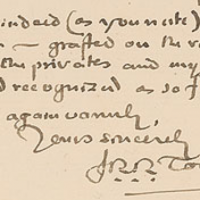 indeed (as you note)
— grafted on the r
the privates and my
d recognized as so f
again warmly,
Yours sincerely
J R R To